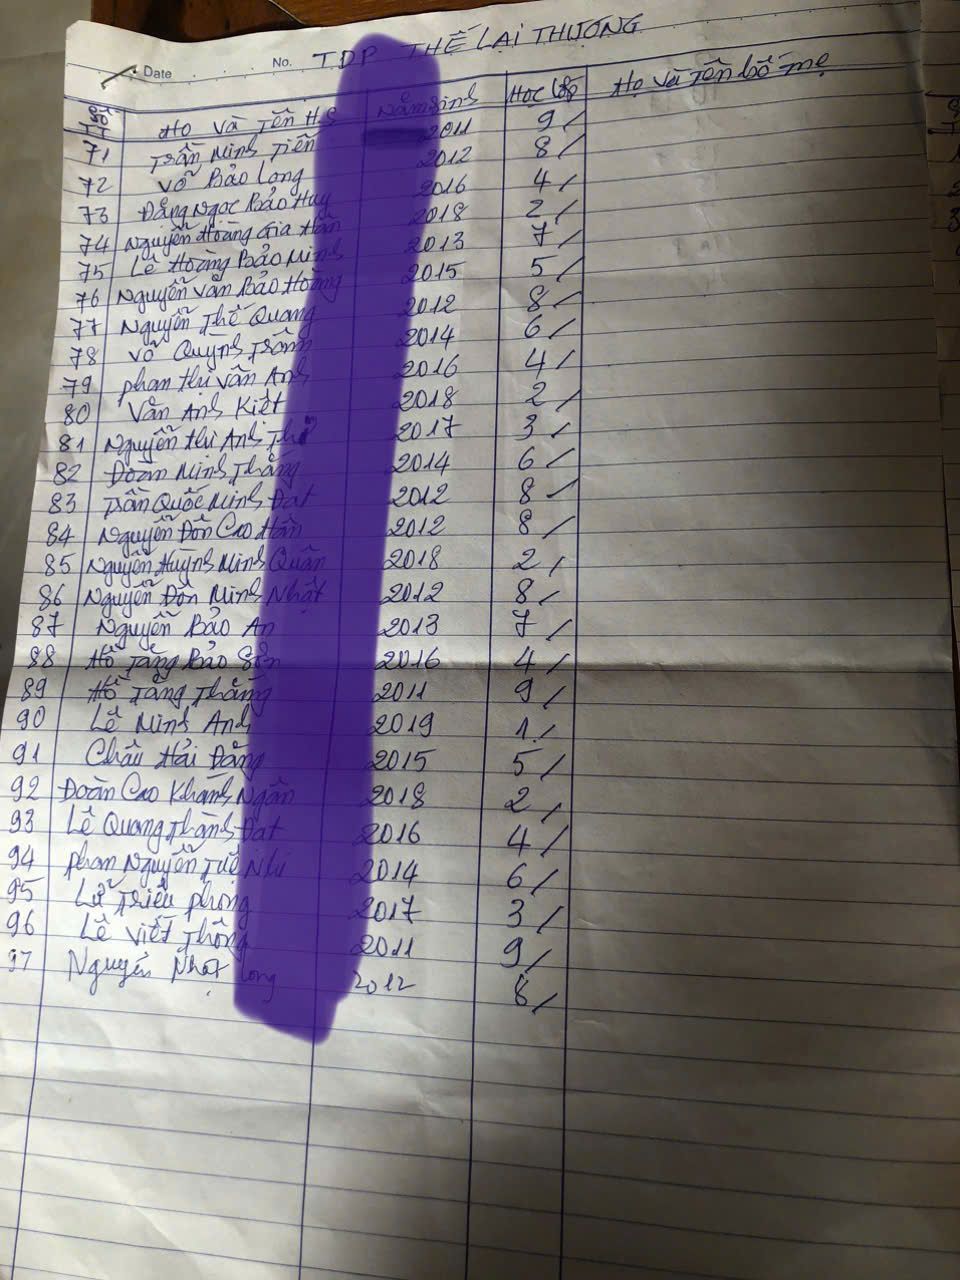 Date No. TDP THẾ LẠI THƯỢNG
Số TT Họ và Tên HS Năm sinh Học lớp Họ và Tên bố mẹ
71 Trần Minh Tiến 2011 9
72 Võ Bảo Long 2012 8
73 Đặng Ngọc Bảo Huy 2016 4
74 Nguyễn Hoàng Gia Hân 2018 2
75 Lê Hoàng Bảo Minh 2013 7
76 Nguyễn Văn Bảo Hoàng 2015 5
77 Nguyễn Thế Quang 2012 8
78 Võ Quỳnh Trâm 2014 6
79 Phan Thị Vân Anh 2016 4
80 Văn Anh Kiệt 2018 2
81 Nguyễn Thị Anh Thư 2017 3
82 Đoàn Minh Thắng 2014 6
83 Trần Quốc Minh Đạt 2012 8
84 Nguyễn Đôn Cao Hân 2012 8
85 Nguyễn Huỳnh Minh Quân 2018 2
86 Nguyễn Đôn Minh Nhật 2012 8
87 Nguyễn Bảo An 2013 7
88 Hồ Tăng Bảo Sơn 2016 4
89 Hồ Tăng Thắng 2011 9
90 Lê Minh Anh 2019 1
91 Châu Hải Đăng 2015 5
92 Đoàn Cao Khánh Ngân 2018 2
93 Lê Quang Thành Đạt 2016 4
94 Phan Nguyễn Tuệ Nhi 2014 6
95 Lữ Triều Phong 2017 3
96 Lê Viết Thông 2011 9
97 Nguyễn Nhật Long 2012 8